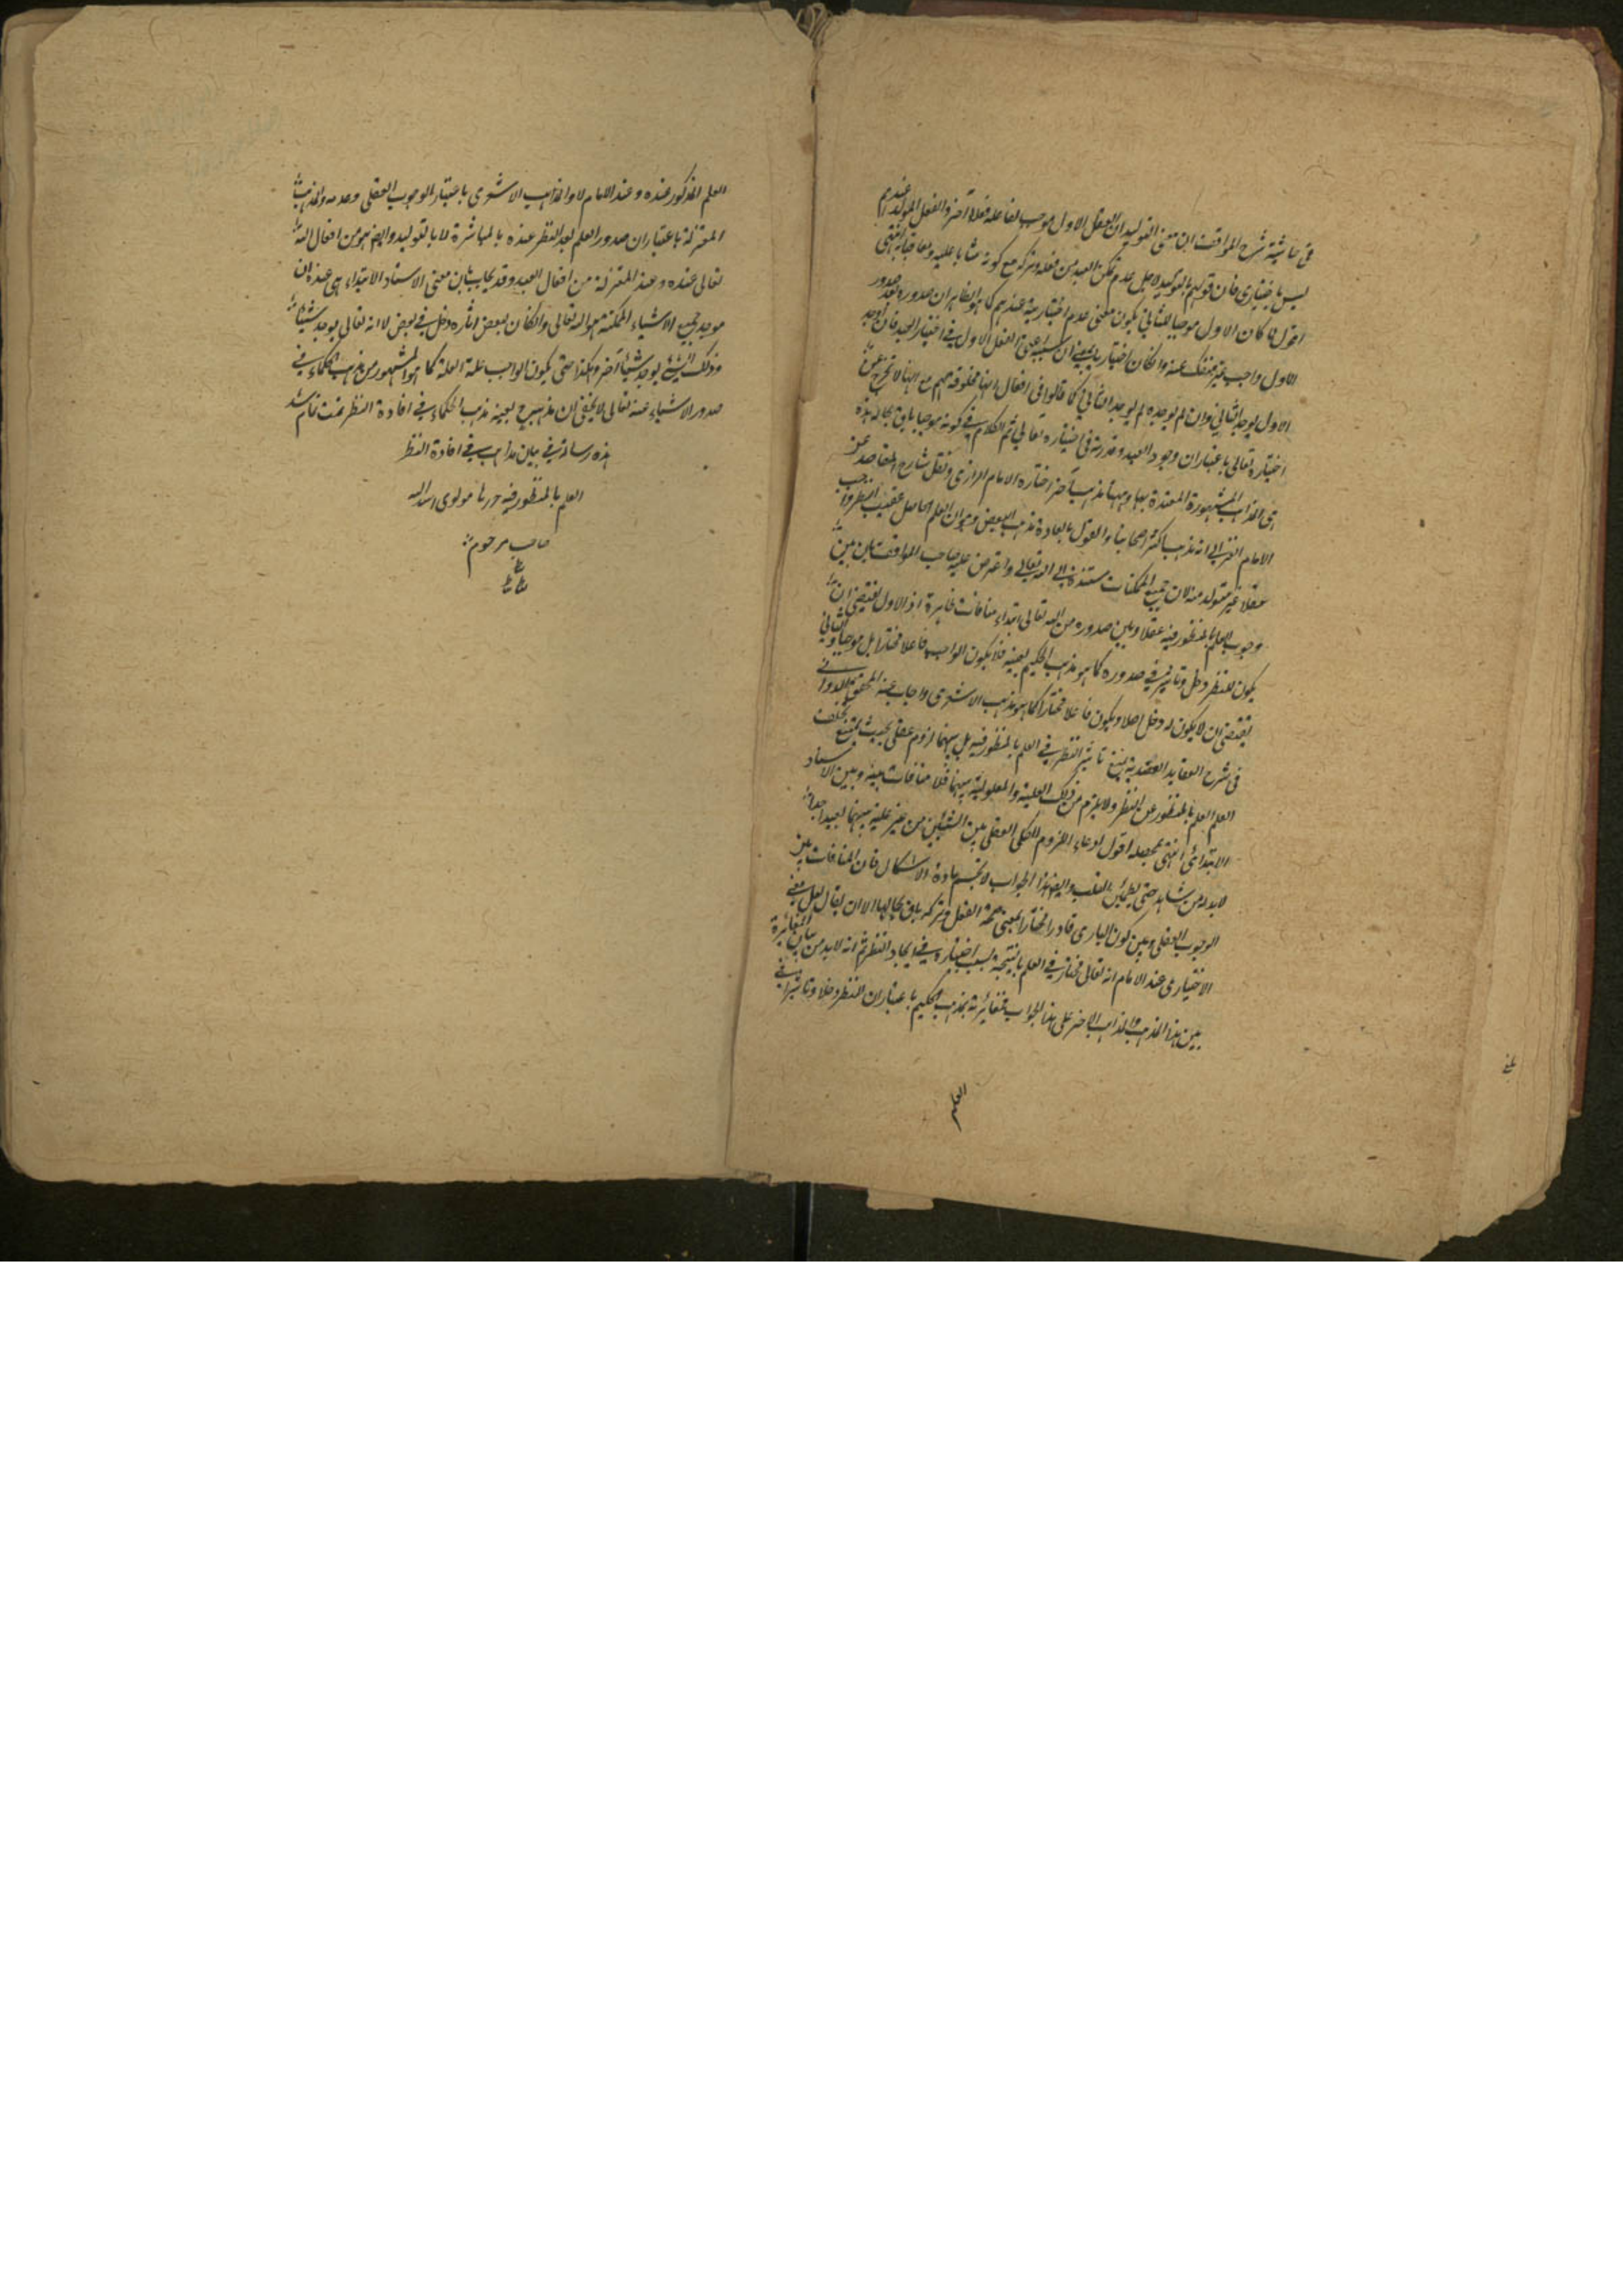 في حاشية شرح المواقف ان معنى التوليد ان الفعل الاول موجب لفاعله فعلا آخر والفعل المولد عندهم
ليس باختياري فان قولهم بالتوليد لاجل عدم تمكن العبد من فعله وتركه مع كونه مثابا عليه ومعاقبا به انتهى
اقول لما كان الاول موجبا للثاني يكون معنى عدم اختياريته عندهم كما هو الظاهر ان صدوره بعد صدور
الاول واجب غير منفك عنه وان كان اختياريا بمعنى ان سببه اعنى الفعل الاول في اختيار العبد فان اوجد
الاول يوجد الثاني وان لم يوجده لم يوجد الثاني كما قالوا في افعال انها مخلوقة لهم مع انها لا تخرج عن
اختياره تعالى باعتبار ان وجود العبد وقدرته في اختياره تعالى ثم الكلام في كونه موجبا باق بحاله هذه
هي المذاهب المشهورة المعتدة بها وههنا مذهب آخر اختاره الامام الرازي ونقل شارح المقاصد عن
الامام الغزالي انه مذهب اكثر اصحابنا والقول بالعادة مذهب البعض وهو ان العلم الحاصل عقيب النظر واجب
عقلا غير متولد منه لان جميع الممكنات مستندة الى الله تعالى واعترض عليه صاحب المواقف بان بين
وجوب العلم بالمنظور فيه عقلا وبين صدوره من الله تعالى ابتداء منافات ظاهرة اذ الاول يقتضي ان
يكون للنظر دخل وتاثير في صدوره كما هو مذهب الحكيم بعينه فلا يكون الواجب فاعلا مختارا بل موجبا والثاني
يقتضي ان لا يكون له دخل اصلا ويكون فاعلا مختارا كما هو مذهب الاشعري واجاب عنه المحقق الدواني
في شرح العقايد العضدية بمنع تاثير النظر في العلم بالمنظور فيه بل بينهما لزوم عقلي بحيث يمتنع تخلف
العلم العلم بالمنظور عن النظر ولا يلزم من ذلك العلية والمعلولية بينهما فلا منافات بينه وبين الاستناد
الابتدائي انتهى بمحصله اقول ادعاء اللزوم الكلي العقلي بين الشيئين من غير علية بينهما بعيد جدا
لا بد له من شاهد حتى يطمئن القلب وايضا هذا الجواب لا تحسم مادة الاشكال فان المنافات بين
الوجوب العقلي وبين كون الباري قادرا مختارا بمعنى صحة الفعل وتركه باق بحالها الا ان يقال لعل معنى
الاختياري عند الامام انه تعالى مختار في العلم بالنتيجة بسبب اختياره في ايجاد النظر ثم انه لا بد من بيان المغايرة
بين هذا المذهب والمذاهب الاخر على هذا الجواب فمغائرته بمذهب الحكيم باعتبار ان للنظر دخلا وتاثيرا في
العلم
العلم المذكور عنده وعند الامام لا والمذاهب الاشعري باعتبار الوجوب العقلي وعدمه والمذهب
المعتزلة باعتبار ان صدور العلم بعد النظر عنده بالمباشرة لا بالتوليد وايضا هو من افعال الله
تعالى عنده وعند المعتزلة من افعال العبد وقد يجاب بان معنى الاسناد الابتداء هي عنده ان
موجد جميع الاشياء الممكنة هو الله تعالى وان كان لبعض اثره دخل في بعض لا انه تعالى يوجد شيئا
وذلك الشئ يوجد شيئا آخر وهكذا حتى يكون الواجب علة العلة كما هو المشهور من مذهب الحكماء في
صدور الاشياء عنه تعالى لا يخفى ان مذهبه ح بعينه مذهب الحكماء في افادة النظر تمت تمام شد
هذه رسالة في بيان مذاهب في افادة النظر
العلم بالمنظور فيه حررها مولوي اسد الله
صاحب مرحوم